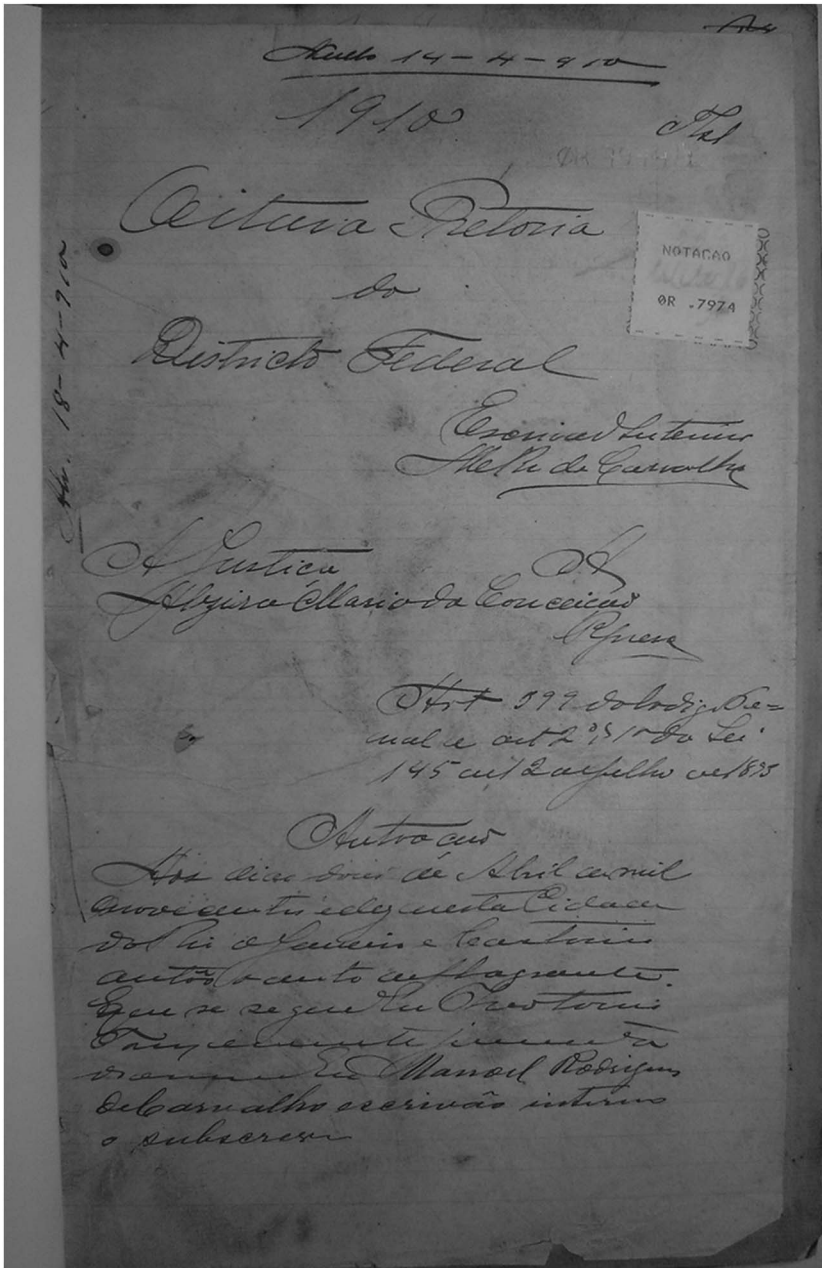 14-4-910
1910
Oitava Pretoria
do
Districto Federal
NOTACAO
0R .7974
Escrivão Interino
de Carvalho
18-4-910
A Justiça A
Maria da Conceição
Art 399 do Codigo Pe=
nal e art 2º § 1º da Lei
145 de 12 de Julho de 1893
Autoação
Aos dias dois de Abril de mil
novecentos e dez nesta Cidade
do Rio de Janeiro e Cartorio
autôo o auto de flagrante
que se segue Eu
Eu Manoel Rodrigues
de Carvalho escrivão interino
o subscrevi